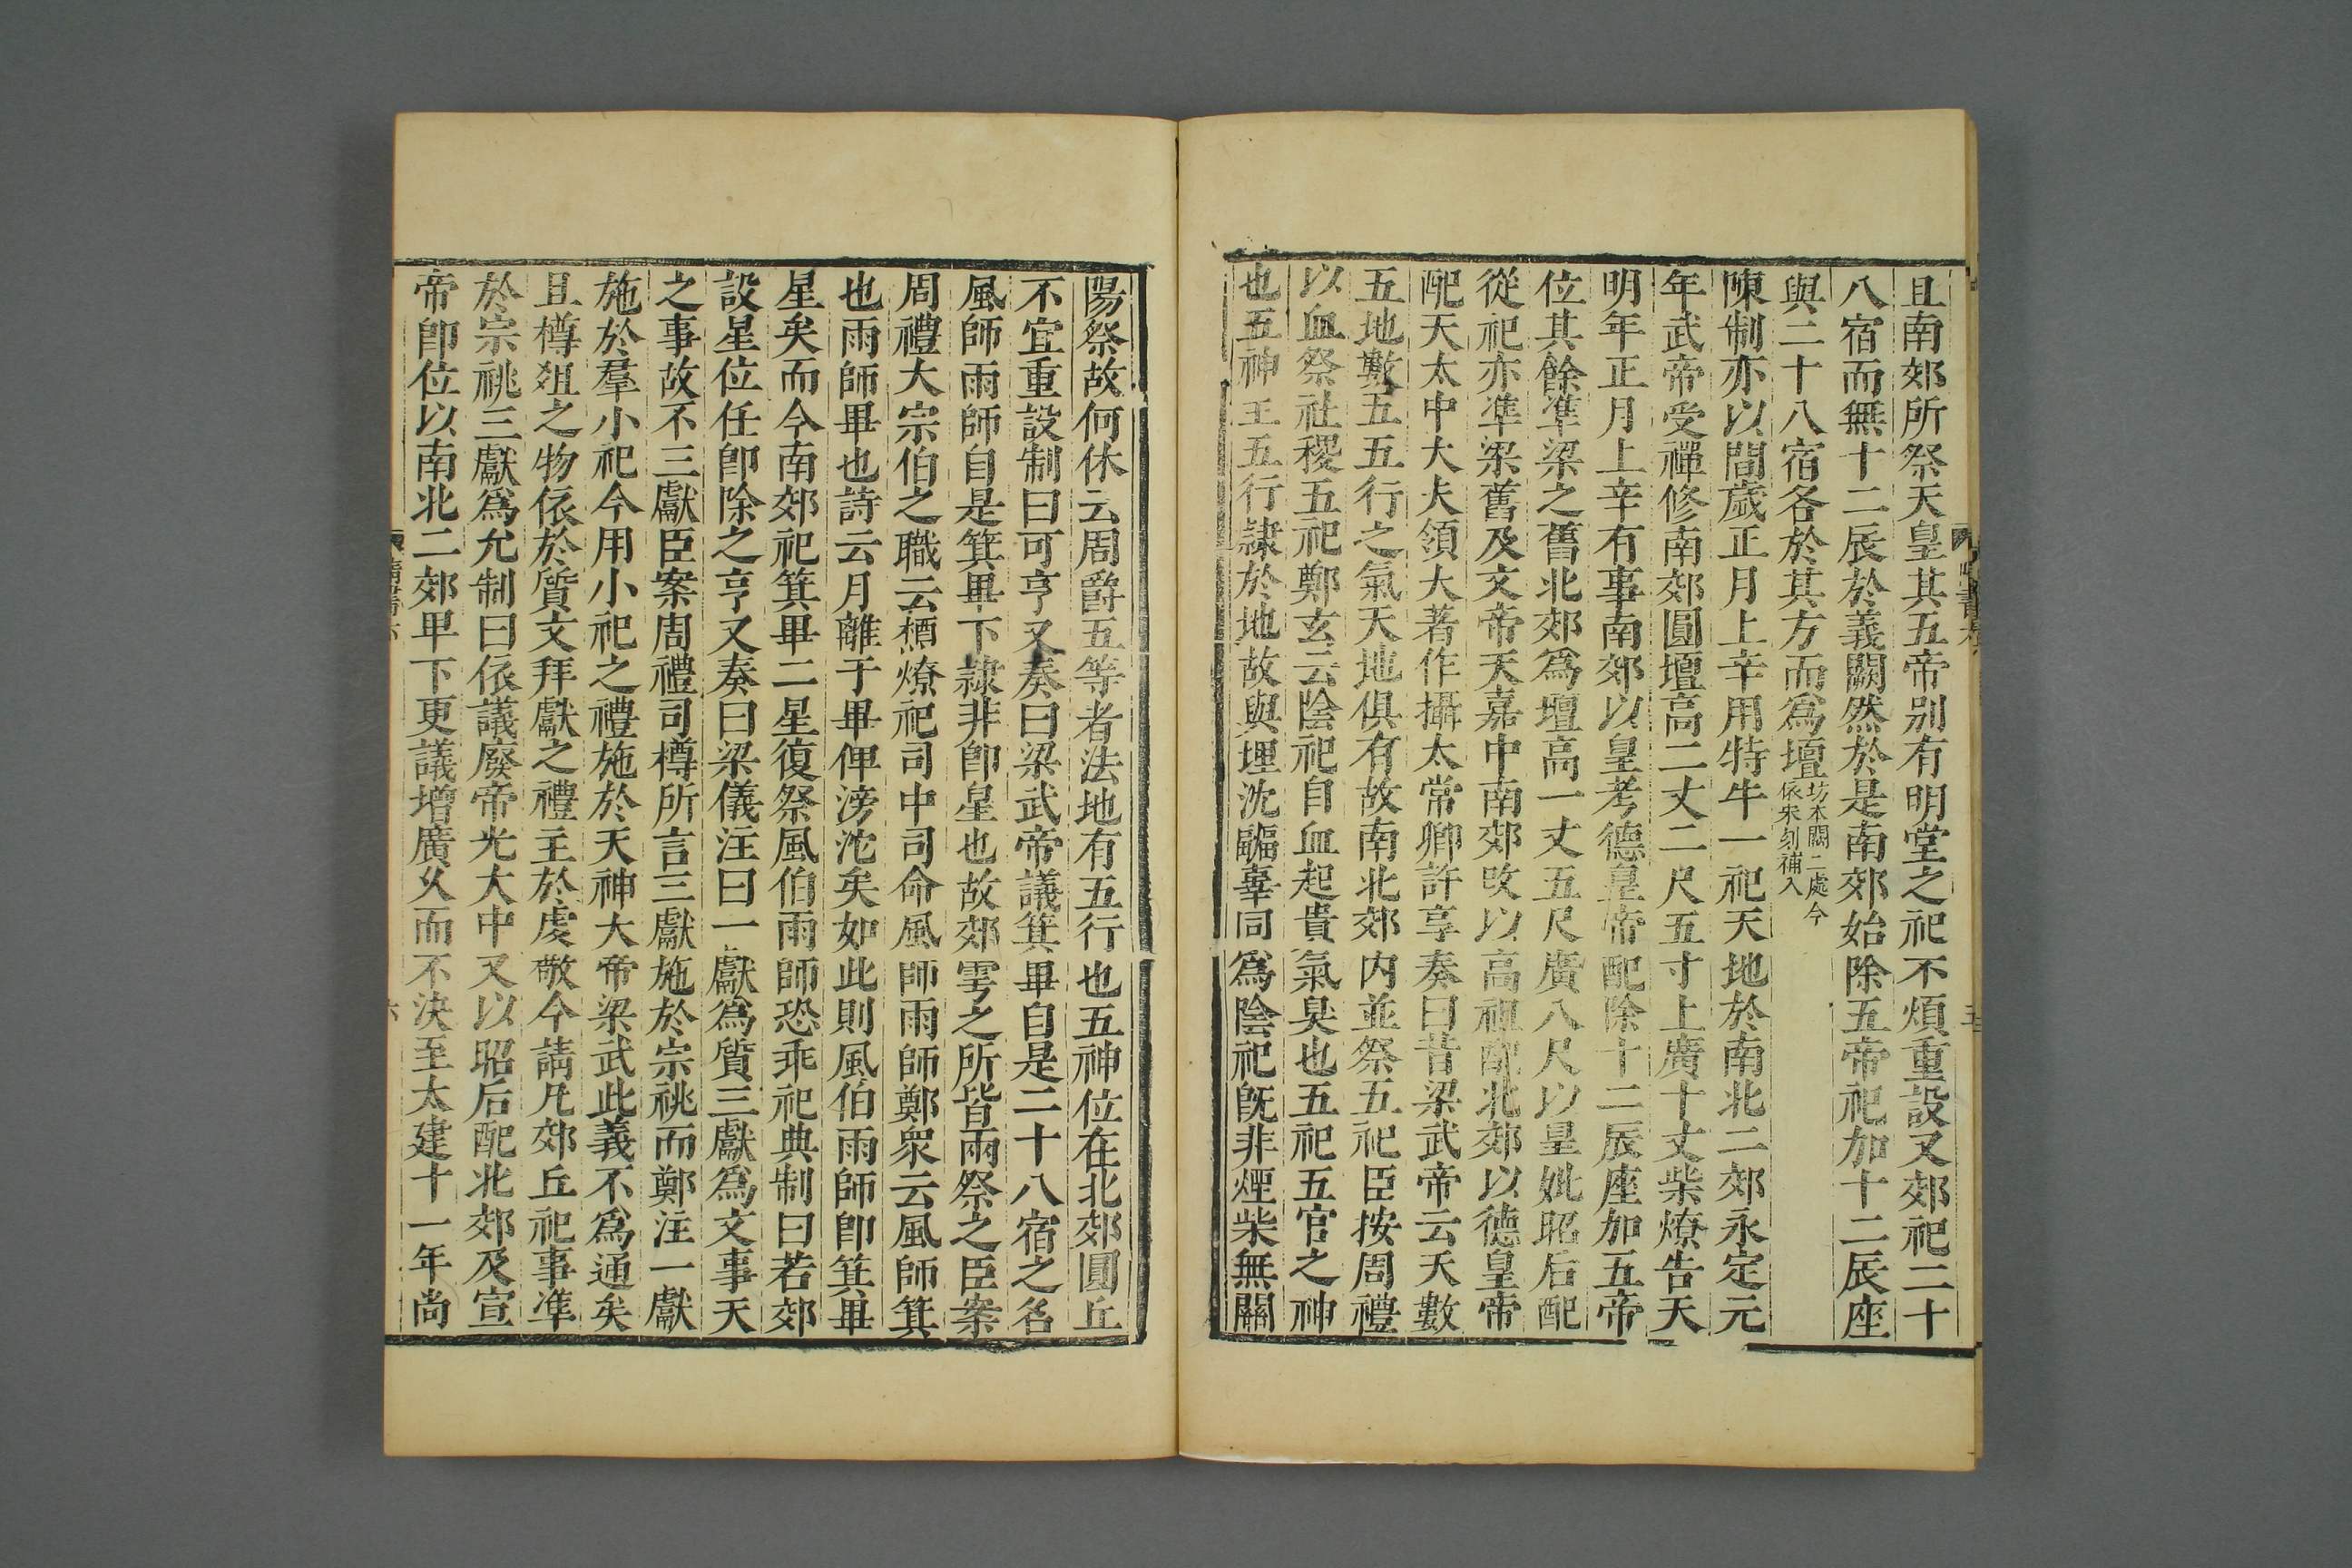 且南郊所祭天皇其五帝别有明堂之祀不煩重設又郊祀二十
八宿而無十二辰於義闕然於是南郊始除五帝祀加十二辰座
與二十八宿各於其方而爲壇坊本闕二處今依宋刻補入
陳制亦以間歲正月上辛用特牛一祀天地於南北二郊永定元
年武帝受禪修南郊圓壇高二丈二尺五寸上廣十丈柴燎告天
明年正月上辛有事南郊以皇考德皇帝配除十二辰座加五帝
位其餘準梁之舊北郊爲壇高一丈五尺廣八尺以皇妣昭后配
從祀亦準梁舊及文帝天嘉中南郊改以高祖配北郊以德皇帝
配天太中大夫領大著作攝太常卿許享奏曰昔梁武帝云天數
五地數五五行之氣天地俱有故南北郊内並祭五祀臣按周禮
以血祭社稷五祀鄭玄云陰祀自血起貴氣臭也五祀五官之神
也五神主五行隷於地故與埋沈疈辜同爲陰祀旣非煙柴無關
陽祭故何休云周爵五等者法地有五行也五神位在北郊圓丘
不宜重設制曰可亨又奏曰梁武帝議箕畢自是二十八宿之名
風師雨師自是箕畢下隷非卽星也故郊雩之所皆兩祭之臣案
周禮大宗伯之職云槱燎祀司中司命風師雨師鄭衆云風師箕
也雨師畢也詩云月離于畢俾滂沱矣如此則風伯雨師卽箕畢
星矣而今南郊祀箕畢二星復祭風伯雨師恐乖祀典制曰若郊
設星位任卽除之亨又奏曰梁儀注曰一獻爲質三獻爲文事天
之事故不三獻臣案周禮司樽所言三獻施於宗祧而鄭注一獻
施於羣小祀今用小祀之禮施於天神大帝梁武此義不爲通矣
且樽爼之物依於質文拜獻之禮主於虔敬今請凡郊丘祀事準
於宗祧三獻爲允制曰依議廢帝光大中又以昭后配北郊及宣
帝卽位以南北二郊卑下更議增廣乆而不決至太建十一年尚